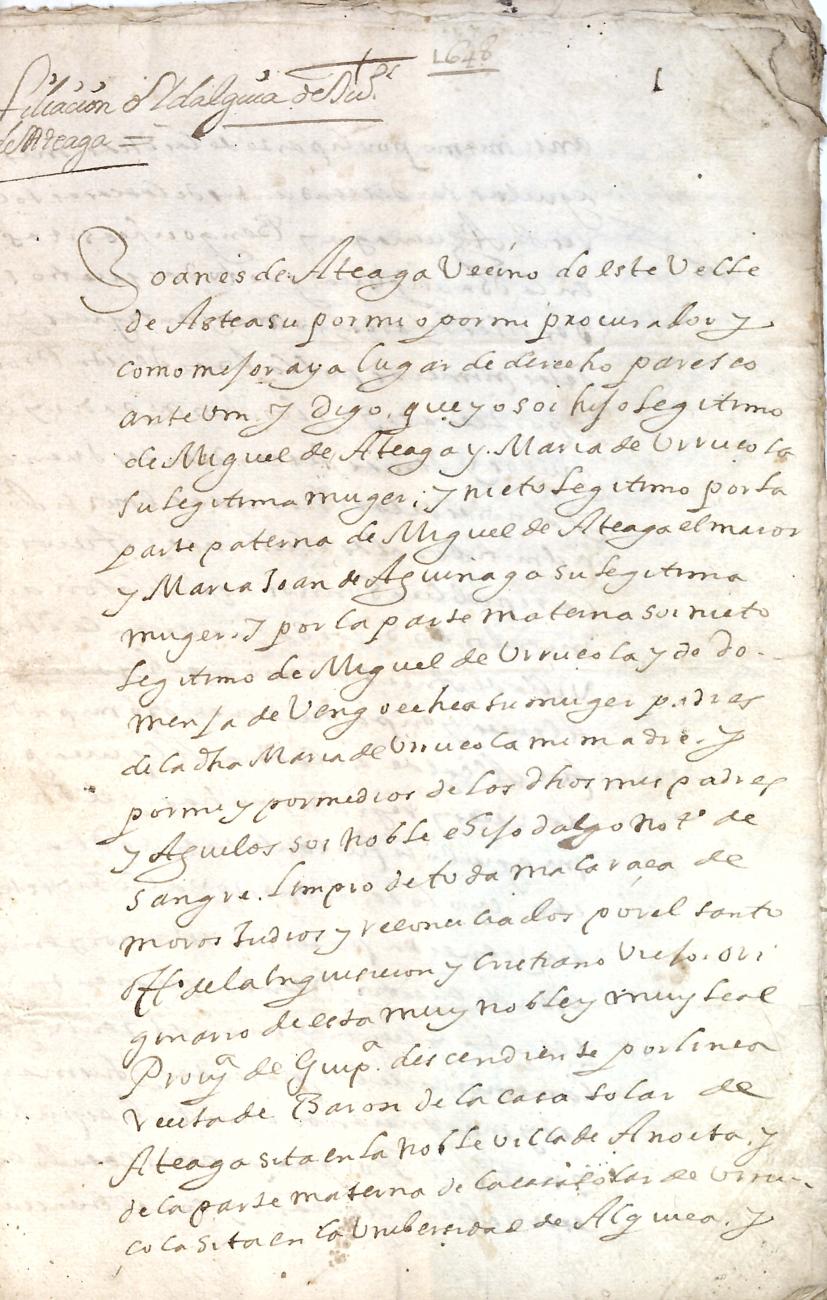 1648
1
filiacion e Ydalguia de Du.
de Ateaga =
Joanes de Ateaga Vecino de este Velle
de Asteasu por mi o por mi procurador y
como mejor aya lugar de derecho paresco
ante Vm. y digo, que yo soi hijo legitimo
de Miguel de Ateaga y Maria de Urrucola
su legitima muger; y nieto legitimo por la
parte paterna de Miguel de Ateaga el maior
y Maria Joan de Aguinaga su legitima
muger. y por la parte materna soi nieto
legitimo de Miguel de Urrucola y do do-
menja de Vengoechea su muger padres
de la dha Maria de Urrucola mi madre. y
por mi y por medios de los dhos mis padres
y Aguelos soi noble e hijo dalgo noto. de
sangre. limpio de toda mala raça de
moros Judios y reconciliados por el santo
offo. de la Inquisicion y Cristiano Viejo. ori
ginario de esta muy noble y muy leal
Provya de Guipa. descendiente por linea
recta de Baron de la casa solar de
Ateaga sita en la noble villa de Anoeta, y
de la parte materna de la casa solar de Urru-
cola sita en la Unibersidad de Alquiça. y